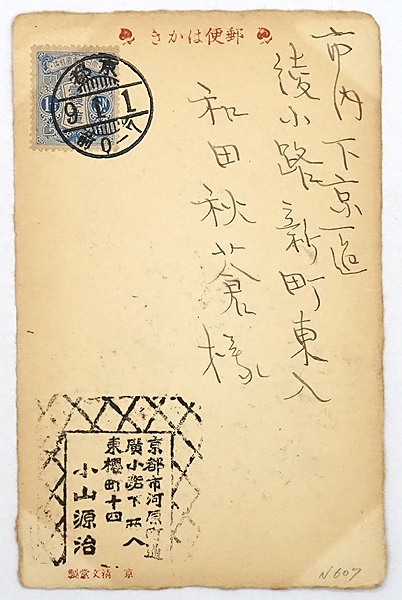 郵便はかき
京都
9.1.1
前0-八
市内下京區
綾小路新町東入
和田秋蒼様
京都市河原町通
廣小路下ル入
東櫻町十四
小山源治
京 精文堂製
N607